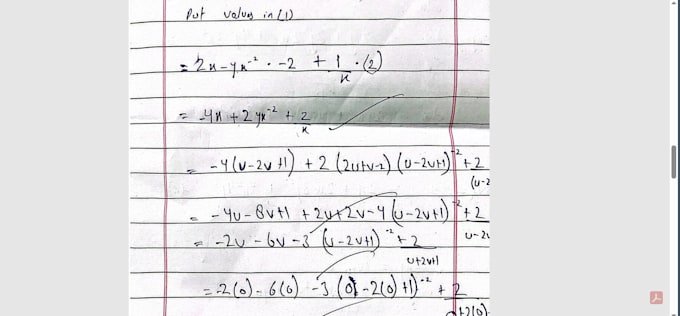 Put values in (1)
= 2x - yx⁻² · -2 + 1/x · (2)
= -4x + 2yx⁻² + 2/x
= -4(u-2v+1) + 2(2u+v-2)(u-2v+1)⁻² + 2/(u-2
= -4u - 8v+1 + 2u+2v-4(u-2v+1)⁻² + 2/u-2v
= -2u - 6v - 3(u-2v+1)⁻² + 2/u+2v+1
= -2(0) - 6(0) - 3(0 - 2(0)+1)⁻² + 2/0+2(0)